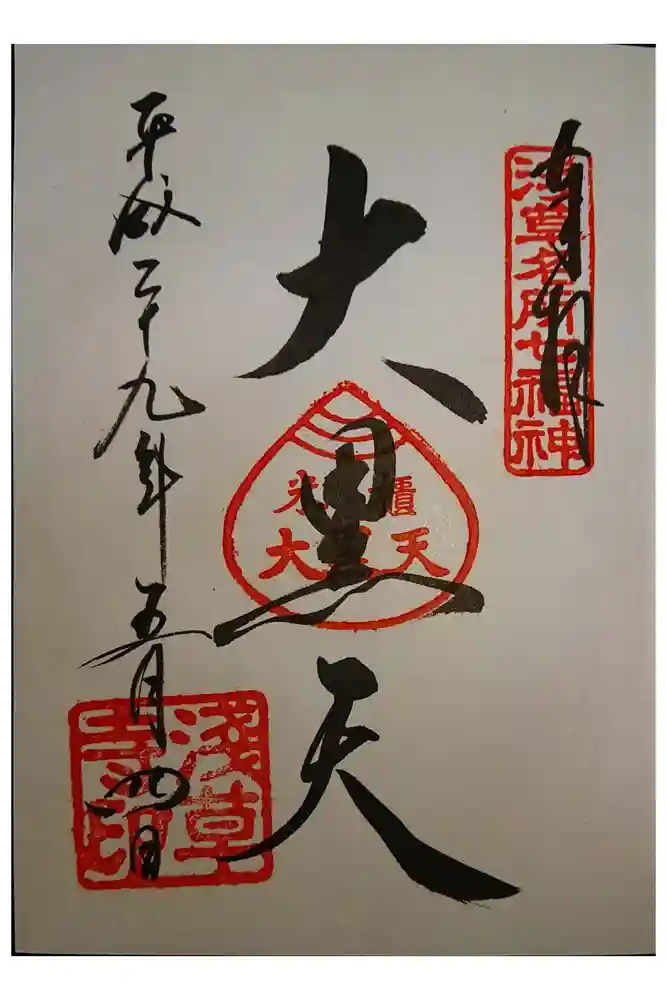 奉拝
浅草名所七福神
大黒天
米櫃
大黒天
平成二十九年五月四日
浅草
寺印